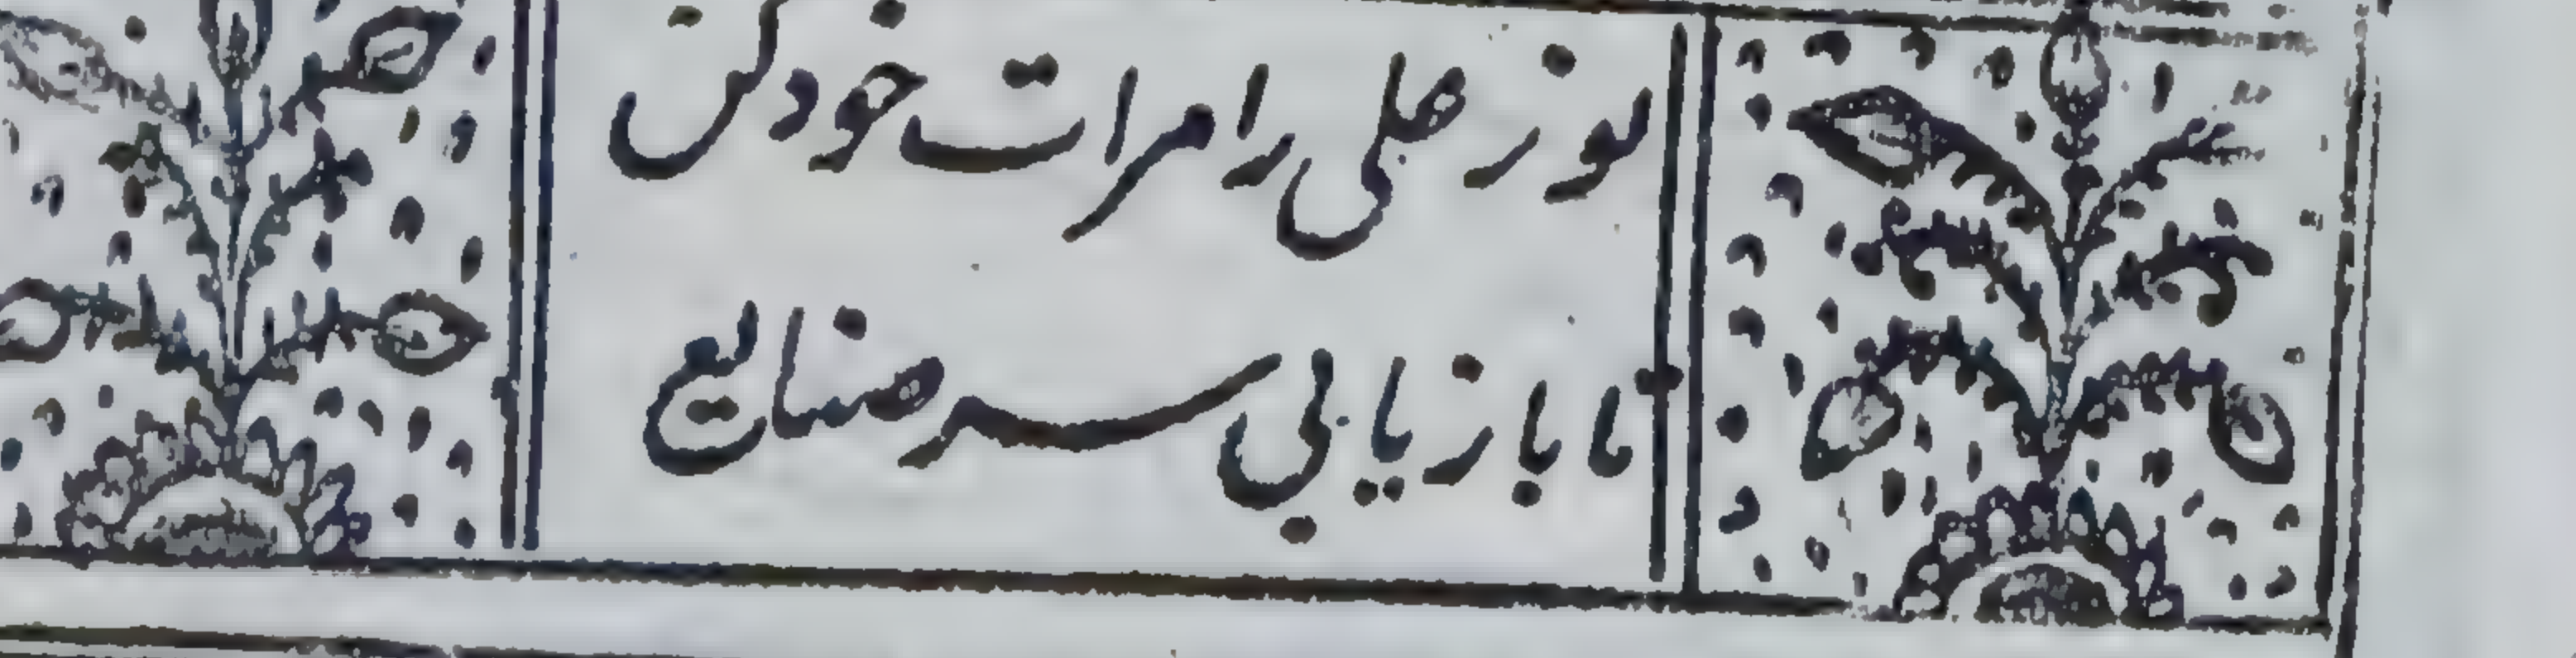 نور علی را مرات خود کن
تا باز یابی سر صنایع